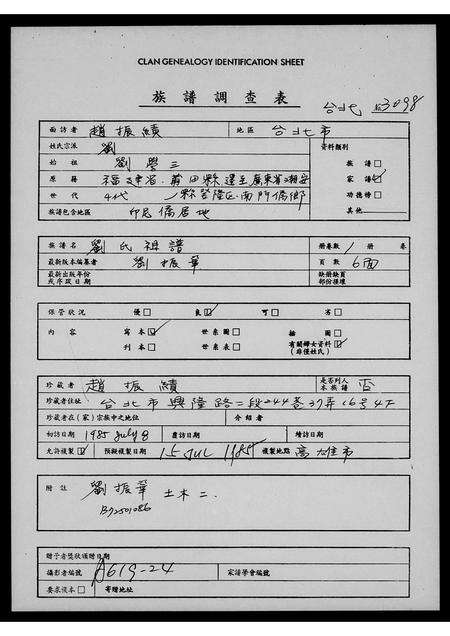 CLAN GENEALOGY IDENTIFICATION SHEET
族譜調查表
台北 3098
面訪者 趙振績 地區 台北市
姓氏宗派 劉 資料類別
始祖 劉學三 族譜□
原籍 福建省莆田縣遷至廣東省潮安 家譜☑
世代 4代 縣登隆區南門僑鄉 功德榜□
族譜包含地區 印尼僑居地 其他
族譜名 劉氏祖譜 冊卷數 1 冊 卷
最新版本編纂者 劉振華 頁數 6面
最新出版年份或序跋日期 缺冊缺頁部份損壞
保管狀況 優□ 良☑ 可□ 劣□
內容 寫本☑ 世系圖□ 插圖□
刊本□ 世系表□ 有關婦女資料☑
(非僅姓氏)
珍藏者 趙振績 是否列入本族譜 否
珍藏者住址 台北市興隆路二段244巷37弄16号4F
珍藏者在(家)宗族中之地位 介紹者
初訪日期 1985 July 8 覆訪日期 續訪日期
允許複製☑ 預擬複製日期 15 JUL 1985 複製地點 高雄市
附註 劉振華 土木二.
B72501086
贈予者獎狀頒贈日期
攝影者編號 A619-24 家譜學會編號
要求複本□ 寄贈地址